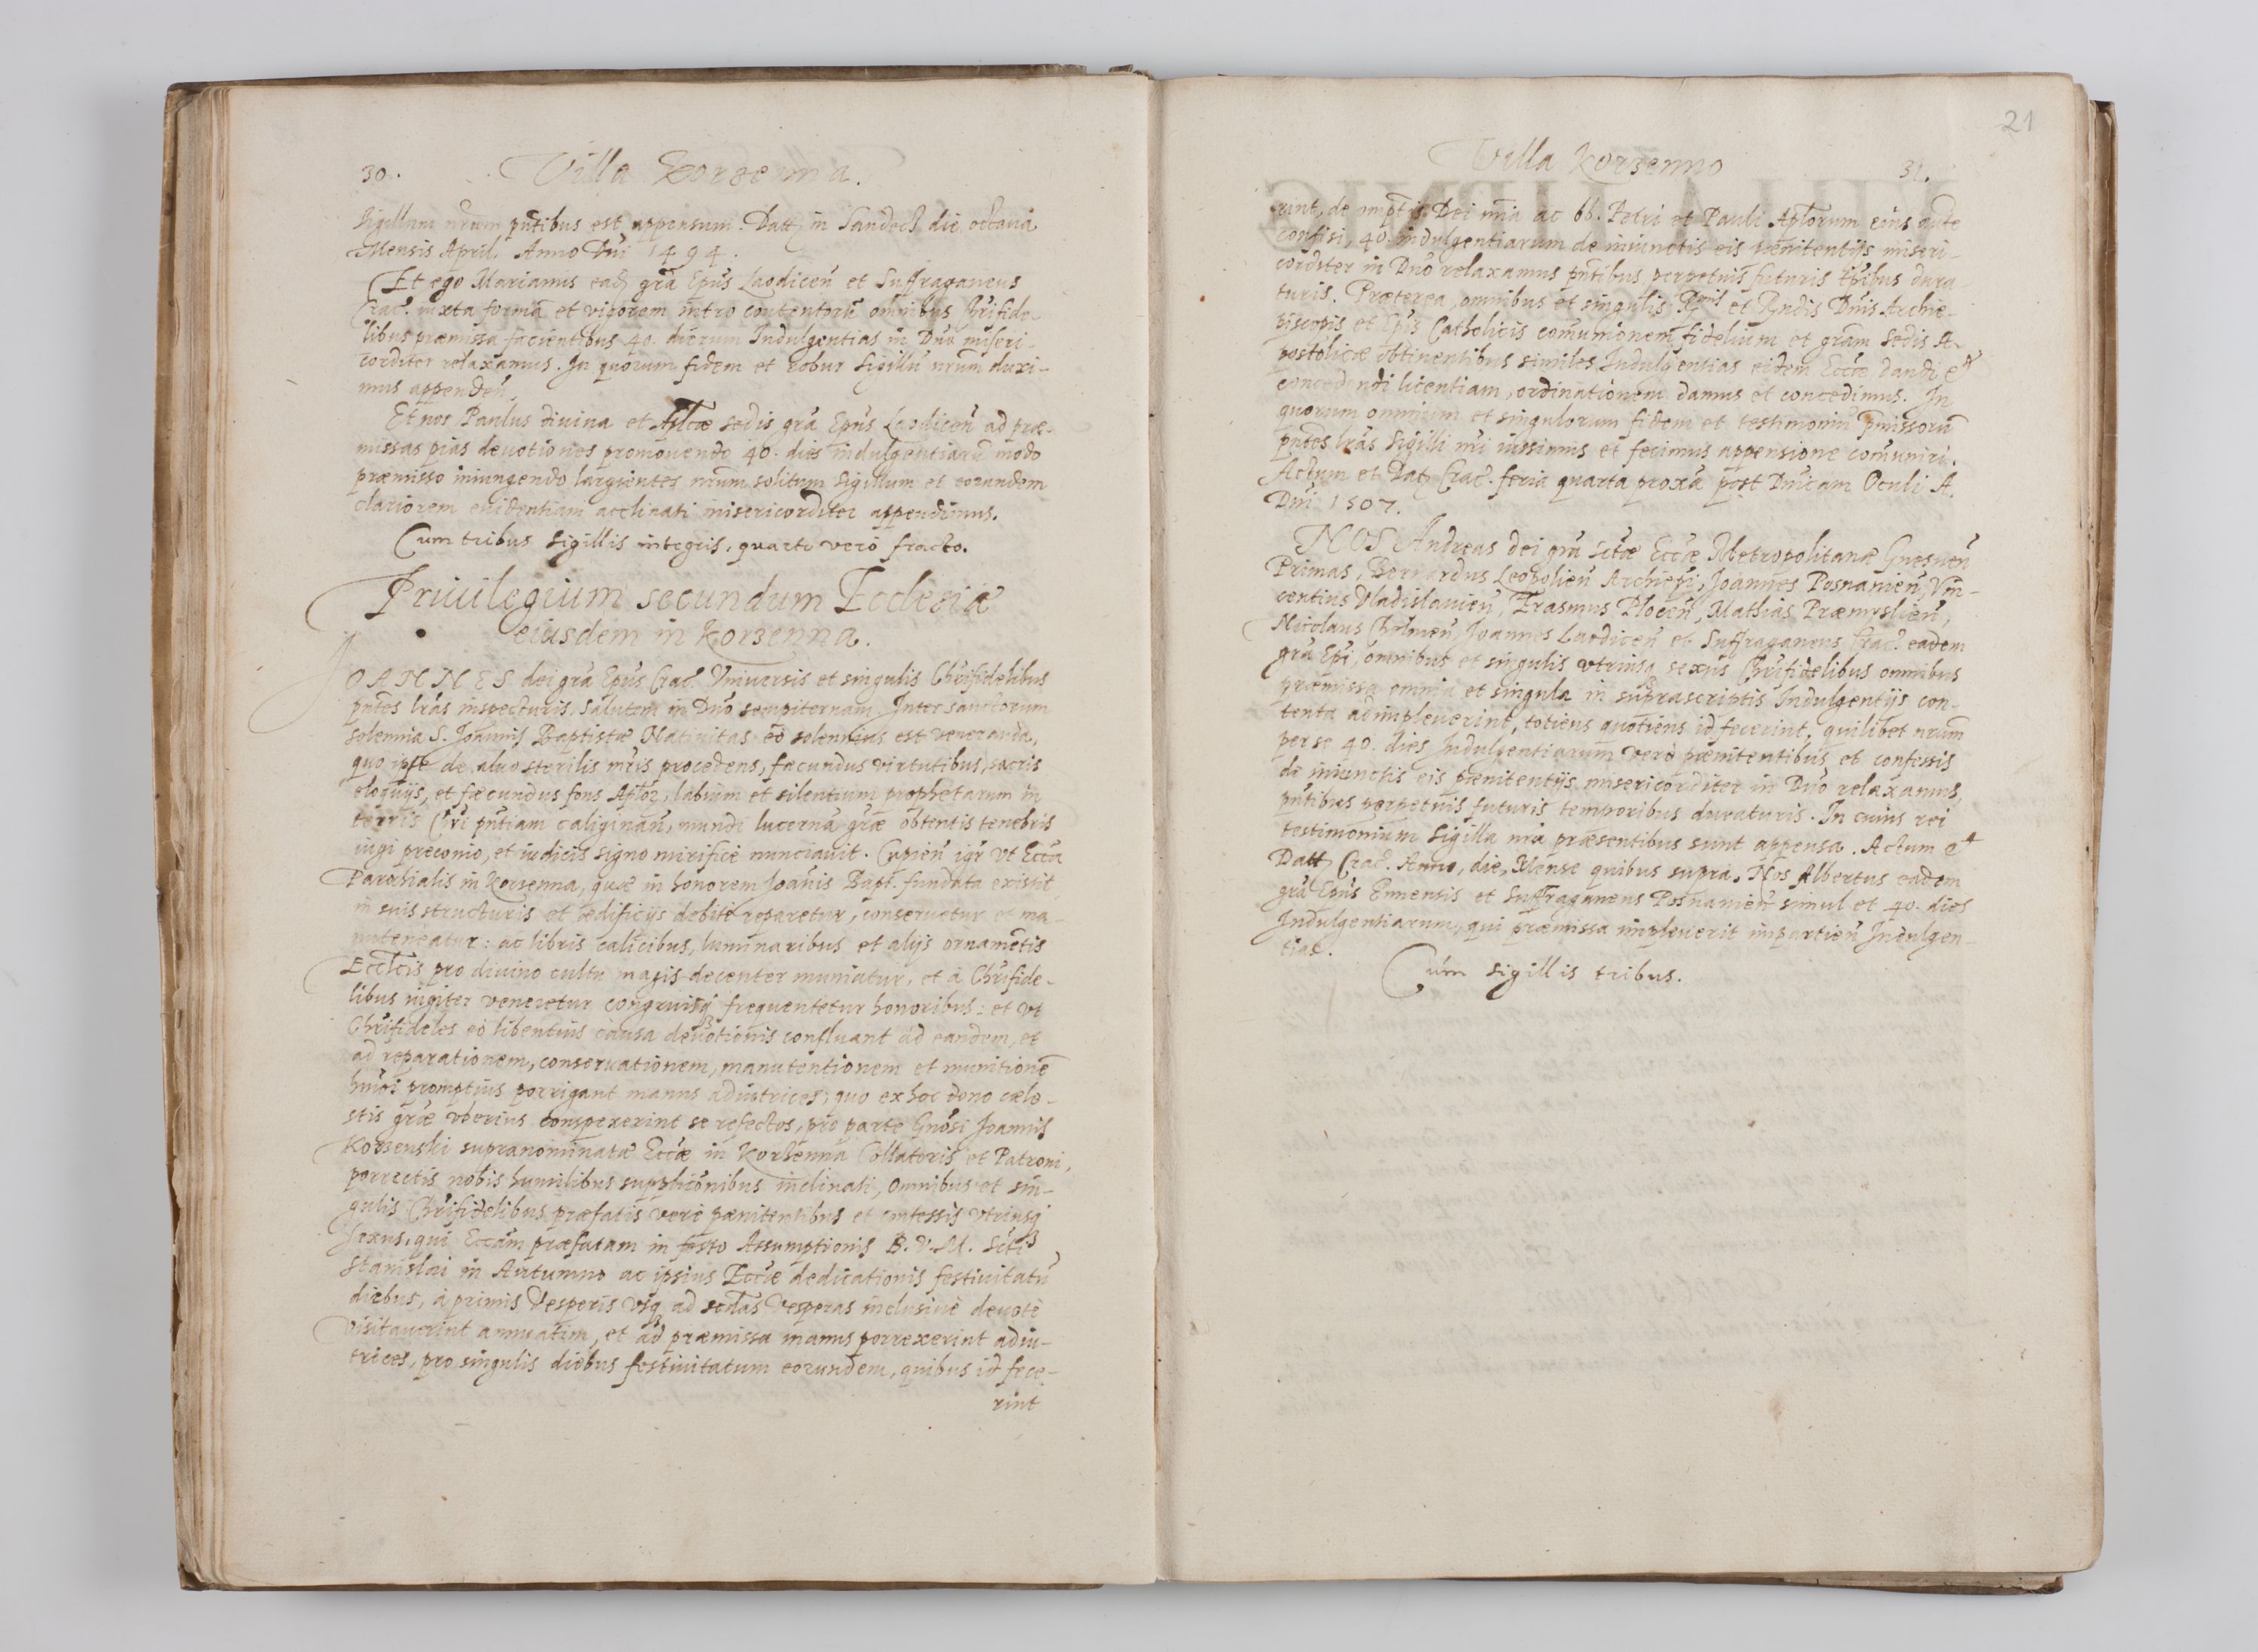 30. Villa Korzenna.
Sigillum nrum pntibus est appensum. Datt. in Sandecz die octava
Mensis April. Anno Dni 1494.
Et ego Marianus eadz gra Epus Laodiceñ et Suffraganeus
Crac. iuxta formã et vigorem intro contentorũ omnibus Xrifide-
libus præmissa facientibus 40. dierum Indulgentias in Dno miseri-
corditer relaxamus. In quorum fidem et robur Sigillũ nrum duxi-
mus appendeñ.
Et nos Paulus divina et Aplicæ Sedis gra Epus Laodiceñ ad præ-
missas pias devotiones promovendo 40. dies indulgentiarũ modo
præmisso iniungendo largientes nrum solitum Sigillum et eorundem
clariorem evidentiam acclinati misericorditer appendimus.
Cum tribus sigillis integris, quarto verò fracto.
Priuilegium secundum Ecclesiæ
eiusdem in Korzenna.
JOANNES dei gra Epus Crac. Vniuersis et singulis Chrifidelibus
pntes lras inspecturis, Salutem in Dno sempiternam. Inter sanctorum
solemnia S. Joannis Baptistæ Natiuitas eò solennius est veneranda,
quo ipse de aluo sterilis mris procedens, facundus virtutibus, sacris
eloquijs, et fæcundus fons Aplor, labium et silentium prophetarum in
terris Xri pntiam caliginañ, mundi lucernã græ obtentis tenebris
iugi preconio, et iudicis signo mirificè nunciavit. Cupieñ igr vt Eccla
Parochialis in Korzenna, quæ in honorem Joãnis Bapt. fundata existit,
in suis structuris et ædificijs debitè reparetur, conseruetur et ma-
nuteneatur: ac libris calicibus, luminaribus et alijs ornametis
Ecclcis pro diuino cultu magis decenter muniatur, et à Chrifide-
libus iugiter veneretur congruisq frequentetur honoribus: et vt
Chrifideles eò libentius causa deuotionis confluant ad eandem, et
ad reparationem, conseruationem, manutentionem et munitionẽ
hmoi promptius porrigant manus adiutrices, quo ex hoc dono cæle-
stis græ vberius conspexerint se refectos, pro parte Gnosi Joannis
Korzenski supranominatæ Eccæ in Korzenna Collatoris et Patroni,
porrectis nobis humilibus supplicõnibus inclinati, Omnibus et sin-
gulis Chrifidelibus præfatis verè pænitentibus et confessis vtriusq
sexus, qui Eccam præfatam in festo Assumptionis B.V.M. Scti
Stanislai in Autumno ac ipsius Eccæ dedicationis festiuitatũ
diebus, à primis Vesperis vsq ad scdas Vesperas inclusiuè deuotè
visitauerint annuatim, et ad præmissa manus porrexerint adiu-
trices, pro singulis diebus festiuitatum eorundem, quibus id fece-
rint
21
Villa Korzenno 31.
rint, de omptis Dei mia ac bb. Petri et Pauli Aplorum eius aucte
confisi, 40. indulgentiarum de iniunctis eis pænitentijs miseri-
corditer in Dno relaxamus pntibus perpetuis futuris tpibus dura-
turis. Præterea, omnibus et singulis Rmis et Rndis Dnis Archie-
piscopis et Epis Catholicis comunionem fidelium et gram Sedis A-
postolicæ obtinentibus similes Indulgentias eidem Eccæ dandi et
concedendi licentiam, ordinationem damus et concedimus. In
quorum omnium et singulorum fidem et testimoniũ pmissorũ
pntes lras Sigilli nri iussimus et fecimus appensione comuniri.
Actum et Dat. Crac. feria quarta proxa post Dnicam Oculi A.
Dni 1507.
NOS Andreas dei gra Sctæ Eccæ Metropolitanæ Gnesneñ
Primas, Bernardus Leopolieñ Archiepi, Joannes Posnanieñ, Vin-
centius Vladislauieñ, Erasmus Ploceñ, Mathias Præmyslieñ,
Nicolaus Chelmeñ, Joannes Laodiceñ et Suffraganeus Crac. eadem
gra Epi, omnibus et singulis vtriusq sexus Chrifidelibus omnibus
præmissa omnia et singula in suprascriptis Indulgentijs con-
tenta adimpleuerint, totiens quotiens id fecerint, quilibet nrum
per se 40. dies Indulgentiarum verè pænitentibus et confessis
de iniunctis eis pænitentijs misericorditer in Dno relaxamus,
pntibus perpetuis futuris temporibus duraturis. In cuius rei
testimonium Sigilla nra præsentibus sunt appensa. Actum et
Datt. Crac. Anno, die, Mense quibus supra. Nos Albertus eadem
gra Epus Ennensis et Suffraganeus Posnanieñ simul et 40. dies
Indulgentiarum, qui præmissa impleuerit impartieñ Indulgen-
tias.
Cum sigillis tribus.